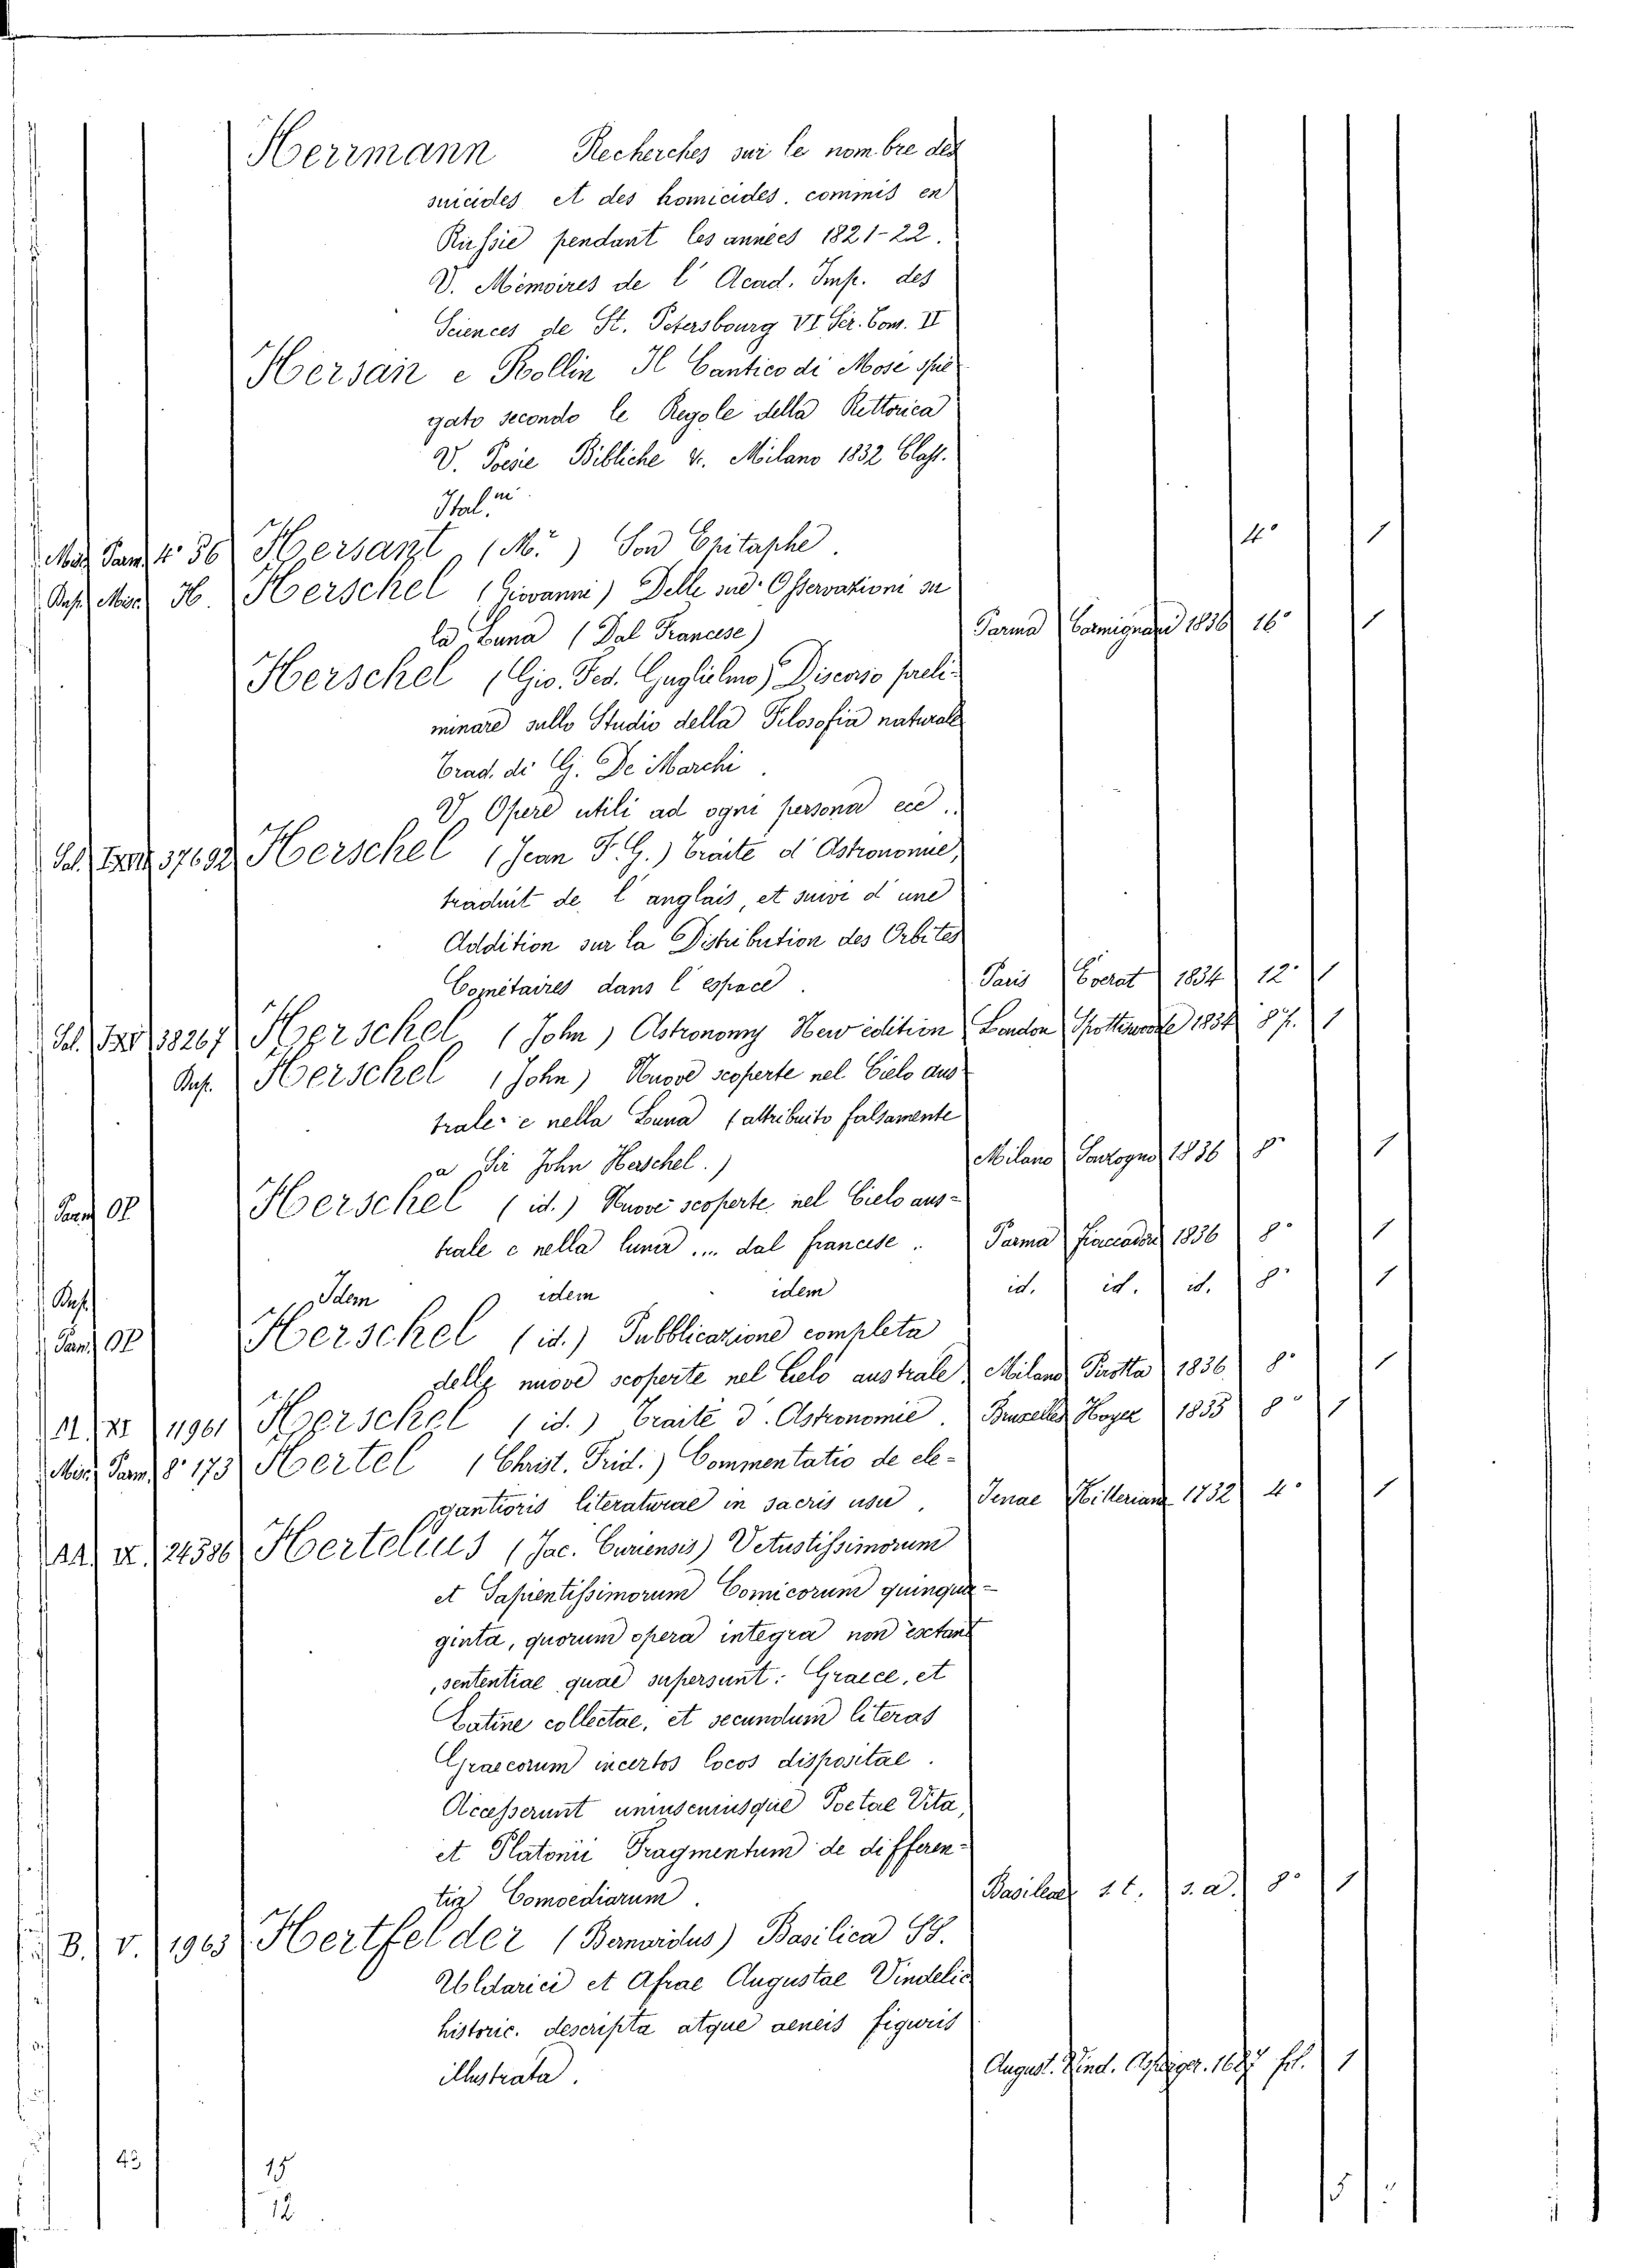 Herrmann Recherches sur le nombre des
suicides et des homicides commis en
Russie pendant les années 1821-22.
V. Mémoires de l'Acad. Imp. des
Sciences de St. Petersbourg VI Ser. Tom. II
Hersan e Rollin Il Cantico di Mosè spie
gato secondo le Regole della Rettorica
V. Poesie Bibliche &. Milano 1832 Class.
Ital.ni
Misc. Parm. 4° 56 Hersant (M.r) Son Epitaphe. 4° 1
Misc. H. Herschel (Giovanni) Delle sue Osservazioni su
la Luna (Dal Francese) Parma Carmignani 1836 16° 1
Herschel (Gio. Fed. Guglielmo) Discorso preli-
minare sullo Studio della Filosofia naturale
Trad. di G. De Marchi.
V. Opere utili ad ogni persona ecc.
37692 Herschel (Jean F. G.) Traité d'Astronomie,
traduit de l'anglais, et suivi d'une
Addition sur la Distribution des Orbites
Cométaires dans l'espace. Paris Everat 1834 12° 1
38267 Herschel (John) Astronomy New edition London Spottiswoode 1834 8° 1
Herschel (John) Nuove scoperte nel Cielo aus-
trale e nella Luna (attribuito falsamente
a Sir John Herschel.) Milano 1836 8° 1
Parm. Herschel (id.) Nuove scoperte nel Cielo aus-
trale e nella luna .... dal francese. Parma Fiaccadori 1836 8° 1
Idem idem idem id. id. id. 8° 1
Parm. Herschel (id.) Pubblicazione completa
delle nuove scoperte nel Cielo australe Milano Pirotta 1836 8° 1
11961 Herschel (id.) Traité d'Astronomie. Bruxelles Hoyer 1835 8° 1
Misc. Parm. 8° 173 Hertel (Christ. Frid.) Commentatio de ele-
gantioris literaturae in sacris usu. Jenae Hilleriana 1732 4° 1
24586 Hertelius (Jac. Curiensis) Vetustissimorum
et Sapientissimorum Comicorum quinqua-
ginta, quorum opera integra non extant
sententiae quae supersunt: Graece, et
Latine collectae, et secundum literas
Graecorum incertos locos dispositae.
Accesserunt uniuscuiusque Poetae Vita,
et Platonii Fragmentum de differen-
tia Comoediarum. Basileae s. t. s. a. 8° 1
B. V. 1963 Hertfelder (Bernardus) Basilica SS.
Uldarici et Afrae Augustae Vindelic
historic. descripta atque aeneis figuris
illustrata. August. Vind. 1627 fol. 1
43 15 5
12